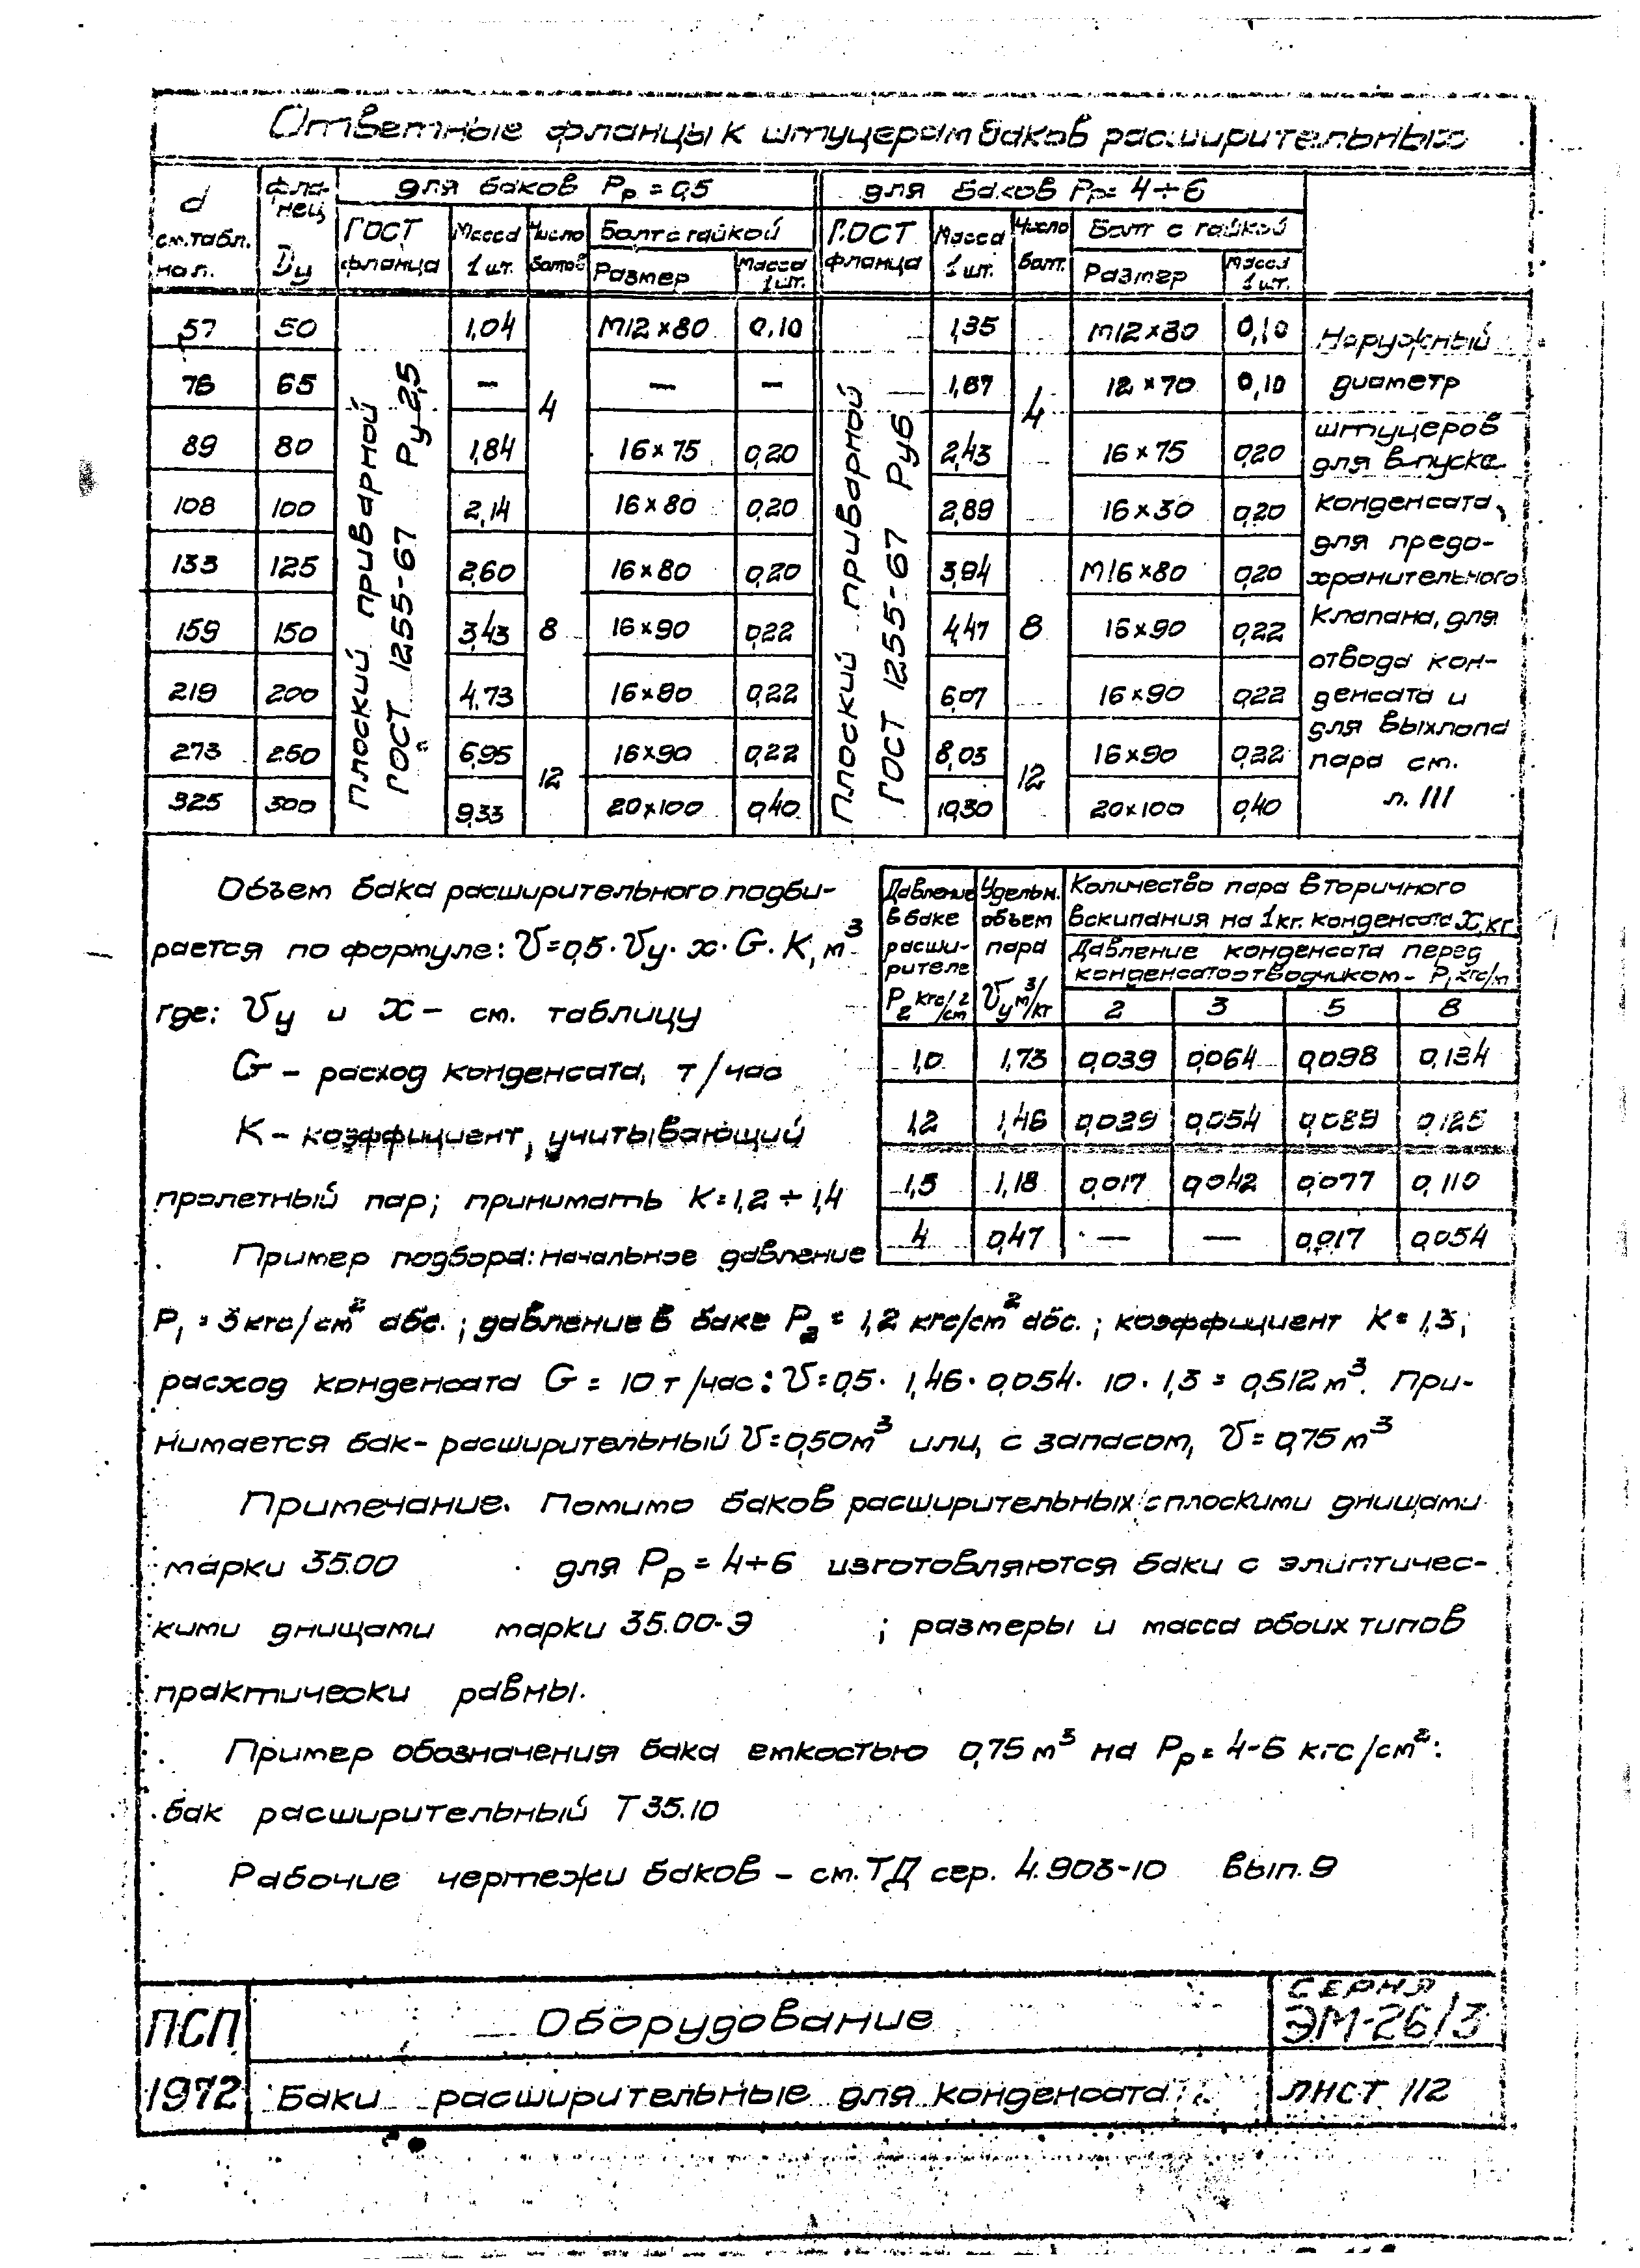 Ответные фланцы к штуцерам баков расширительных
d см. табл. на л. | фланец Dу | для баков Pр = 0,5 | для баков Pр = 4÷6
ГОСТ фланца | Масса 1 шт. | Число болтов | Болт с гайкой | ГОСТ фланца | Масса 1 шт. | Число болт. | Болт с гайкой
Размер | Масса 1 шт. | Размер | Масса 1 шт.
Плоский приварной ГОСТ 1255-67 Ру 2,5
Плоский приварной ГОСТ 1255-67 Ру 6
57 | 50 | 1,04 | 4 | М12×80 | 0,10 | 1,35 | 4 | М12×80 | 0,10
76 | 65 | — | — | — | 1,67 | 12×70 | 0,10
89 | 80 | 1,84 | 16×75 | 0,20 | 2,43 | 16×75 | 0,20
108 | 100 | 2,14 | 16×80 | 0,20 | 2,89 | 16×80 | 0,20
133 | 125 | 2,60 | 8 | 16×80 | 0,20 | 3,94 | 8 | М16×80 | 0,20
159 | 150 | 3,43 | 16×90 | 0,22 | 4,47 | 16×90 | 0,22
219 | 200 | 4,73 | 16×90 | 0,22 | 6,07 | 16×90 | 0,22
273 | 250 | 6,95 | 12 | 16×90 | 0,22 | 8,03 | 12 | 16×90 | 0,22
325 | 300 | 9,33 | 20×100 | 0,40 | 10,30 | 20×100 | 0,40
Наружный
диаметр
штуцеров
для впуска
конденсата,
для предо-
хранительного
клапана, для
отвода кон-
денсата и
для выхлопа
пара см.
л. 111
Объем бака расширительного подби-
рается по формуле: V=0,5·Vу·x·G·K, м³
где: Vу и x – см. таблицу
G – расход конденсата, т/час
K – коэффициент, учитывающий
пролетный пар; принимать K=1,2÷1,4
Пример подбора: начальное давление
Давление в баке расширителе P₂ кгс/см² | Удельн. объем пара Vу м³/кг | Количество пара вторичного вскипания на 1кг. конденсата X, кг
Давление конденсата перед конденсатоотводчиком – P₁ кгс/м
2 | 3 | 5 | 8
1,0 | 1,73 | 0,039 | 0,064 | 0,098 | 0,134
1,2 | 1,46 | 0,029 | 0,054 | 0,089 | 0,125
1,5 | 1,18 | 0,017 | 0,042 | 0,077 | 0,110
4 | 0,47 | — | — | 0,017 | 0,054
P₁ = 3 кгс/см² абс.; давление в баке P₂ = 1,2 кгс/см² абс.; коэффициент K = 1,3;
расход конденсата G = 10 т/час: V=0,5· 1,46· 0,054· 10· 1,3 = 0,512 м³. При-
нимается бак-расширительный V=0,50м³ или, с запасом, V= 0,75 м³
Примечание. Помимо баков расширительных с плоскими днищами
марки 35.00 для Pр = 4÷6 изготовляются баки с элиптичес-
кими днищами марки 35.00-Э ; размеры и масса обоих типов
практически равны.
Пример обозначения бака емкостью 0,75 м³ на Pр = 4-6 кгс/см²:
бак расширительный Т 35.10
Рабочие чертежи баков – см. ТД сер. 4.903-10 вып. 9
ПСП
1972
Оборудование
Баки расширительные для конденсата
СЕРИЯ
ЭМ-26/3
ЛИСТ 112